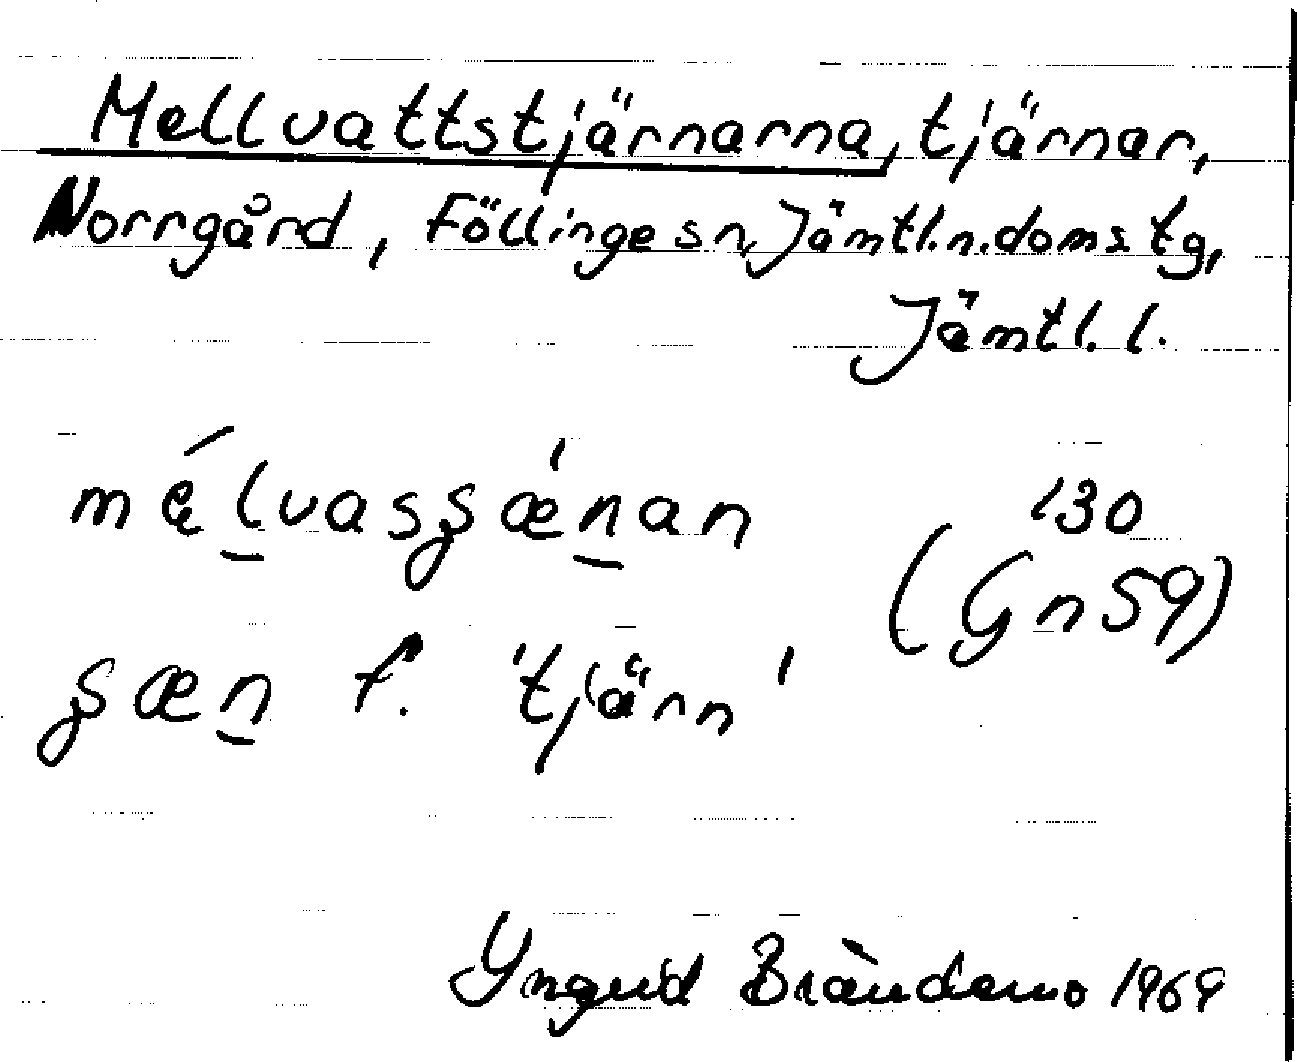 Mellvattstjärnarna, tjärnar,
Norrgård, Föllinge sn, Jämtl.n.doms.tg,
Jämtl. l.
130
(Gn59)
f. 'tjärn'
Yngvild Brändemo 1969